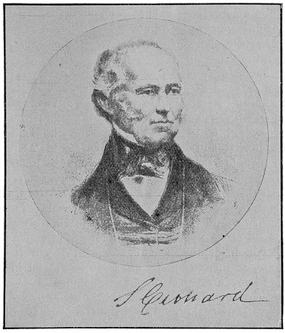 S Leonard